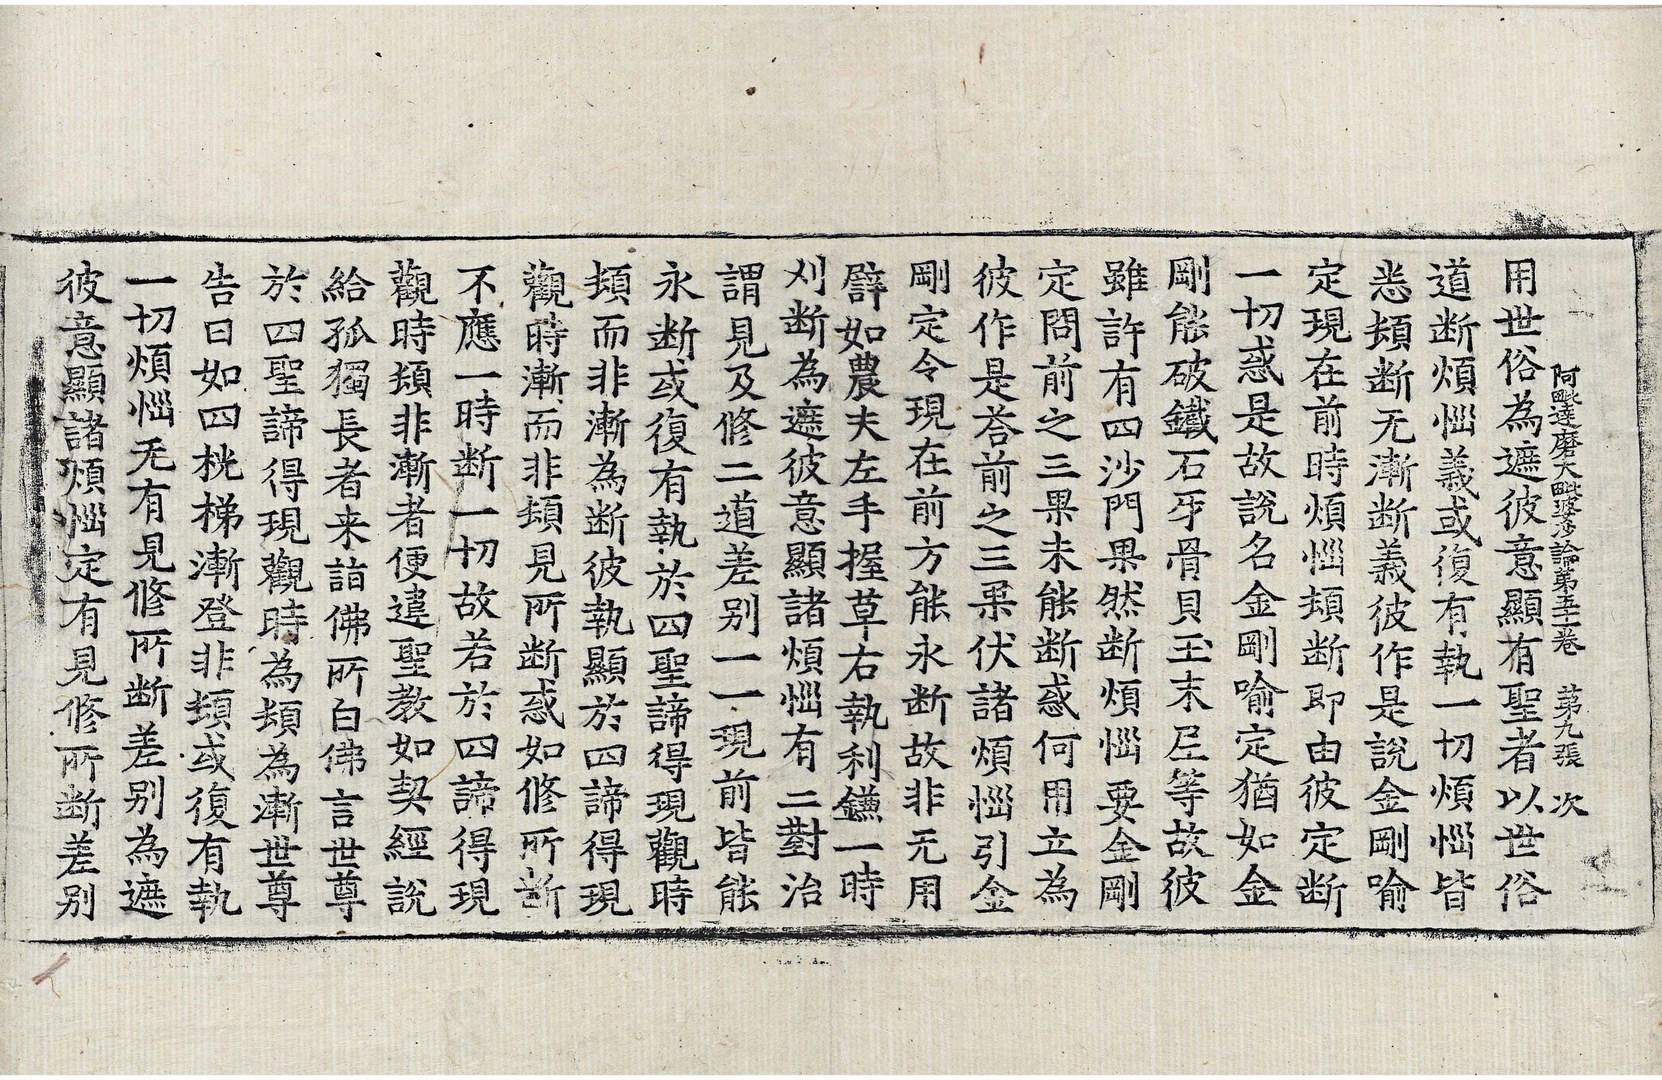 阿毗達磨大毗婆沙論第五十一卷 第九張 次
用世俗為遮彼意顯有聖者以世俗
道断煩惱義或復有執一切煩惱皆
悉頓断无漸断義彼作是說金剛喻
定現在前時煩惱頓断即由彼定断
一切惑是故說名金剛喻定猶如金
剛能破鐵石牙骨貝玉末尼等故彼
雖許有四沙門果然断煩惱要金剛
定問前之三果未能断惑何用立為
彼作是荅前之三果伏諸煩惱引金
剛定令現在前方能永断故非无用
譬如農夫左手握草右執利鎌一時
刈断為遮彼意顯諸煩惱有二對治
謂見及修二道差别一一現前皆能
永断或復有執於四聖諦得現觀時
頓而非漸為断彼執顯於四諦得現
觀時漸而非頓見所断惑如修所断
不應一時断一切故若於四諦得現
觀時頓非漸者便違聖教如契經說
給孤獨長者来詣佛所白佛言世尊
於四聖諦得現觀時為頓為漸世尊
告曰如四桄梯漸登非頓或復有執
一切煩惱无有見修所断差别為遮
彼意顯諸煩惱定有見修所断差别